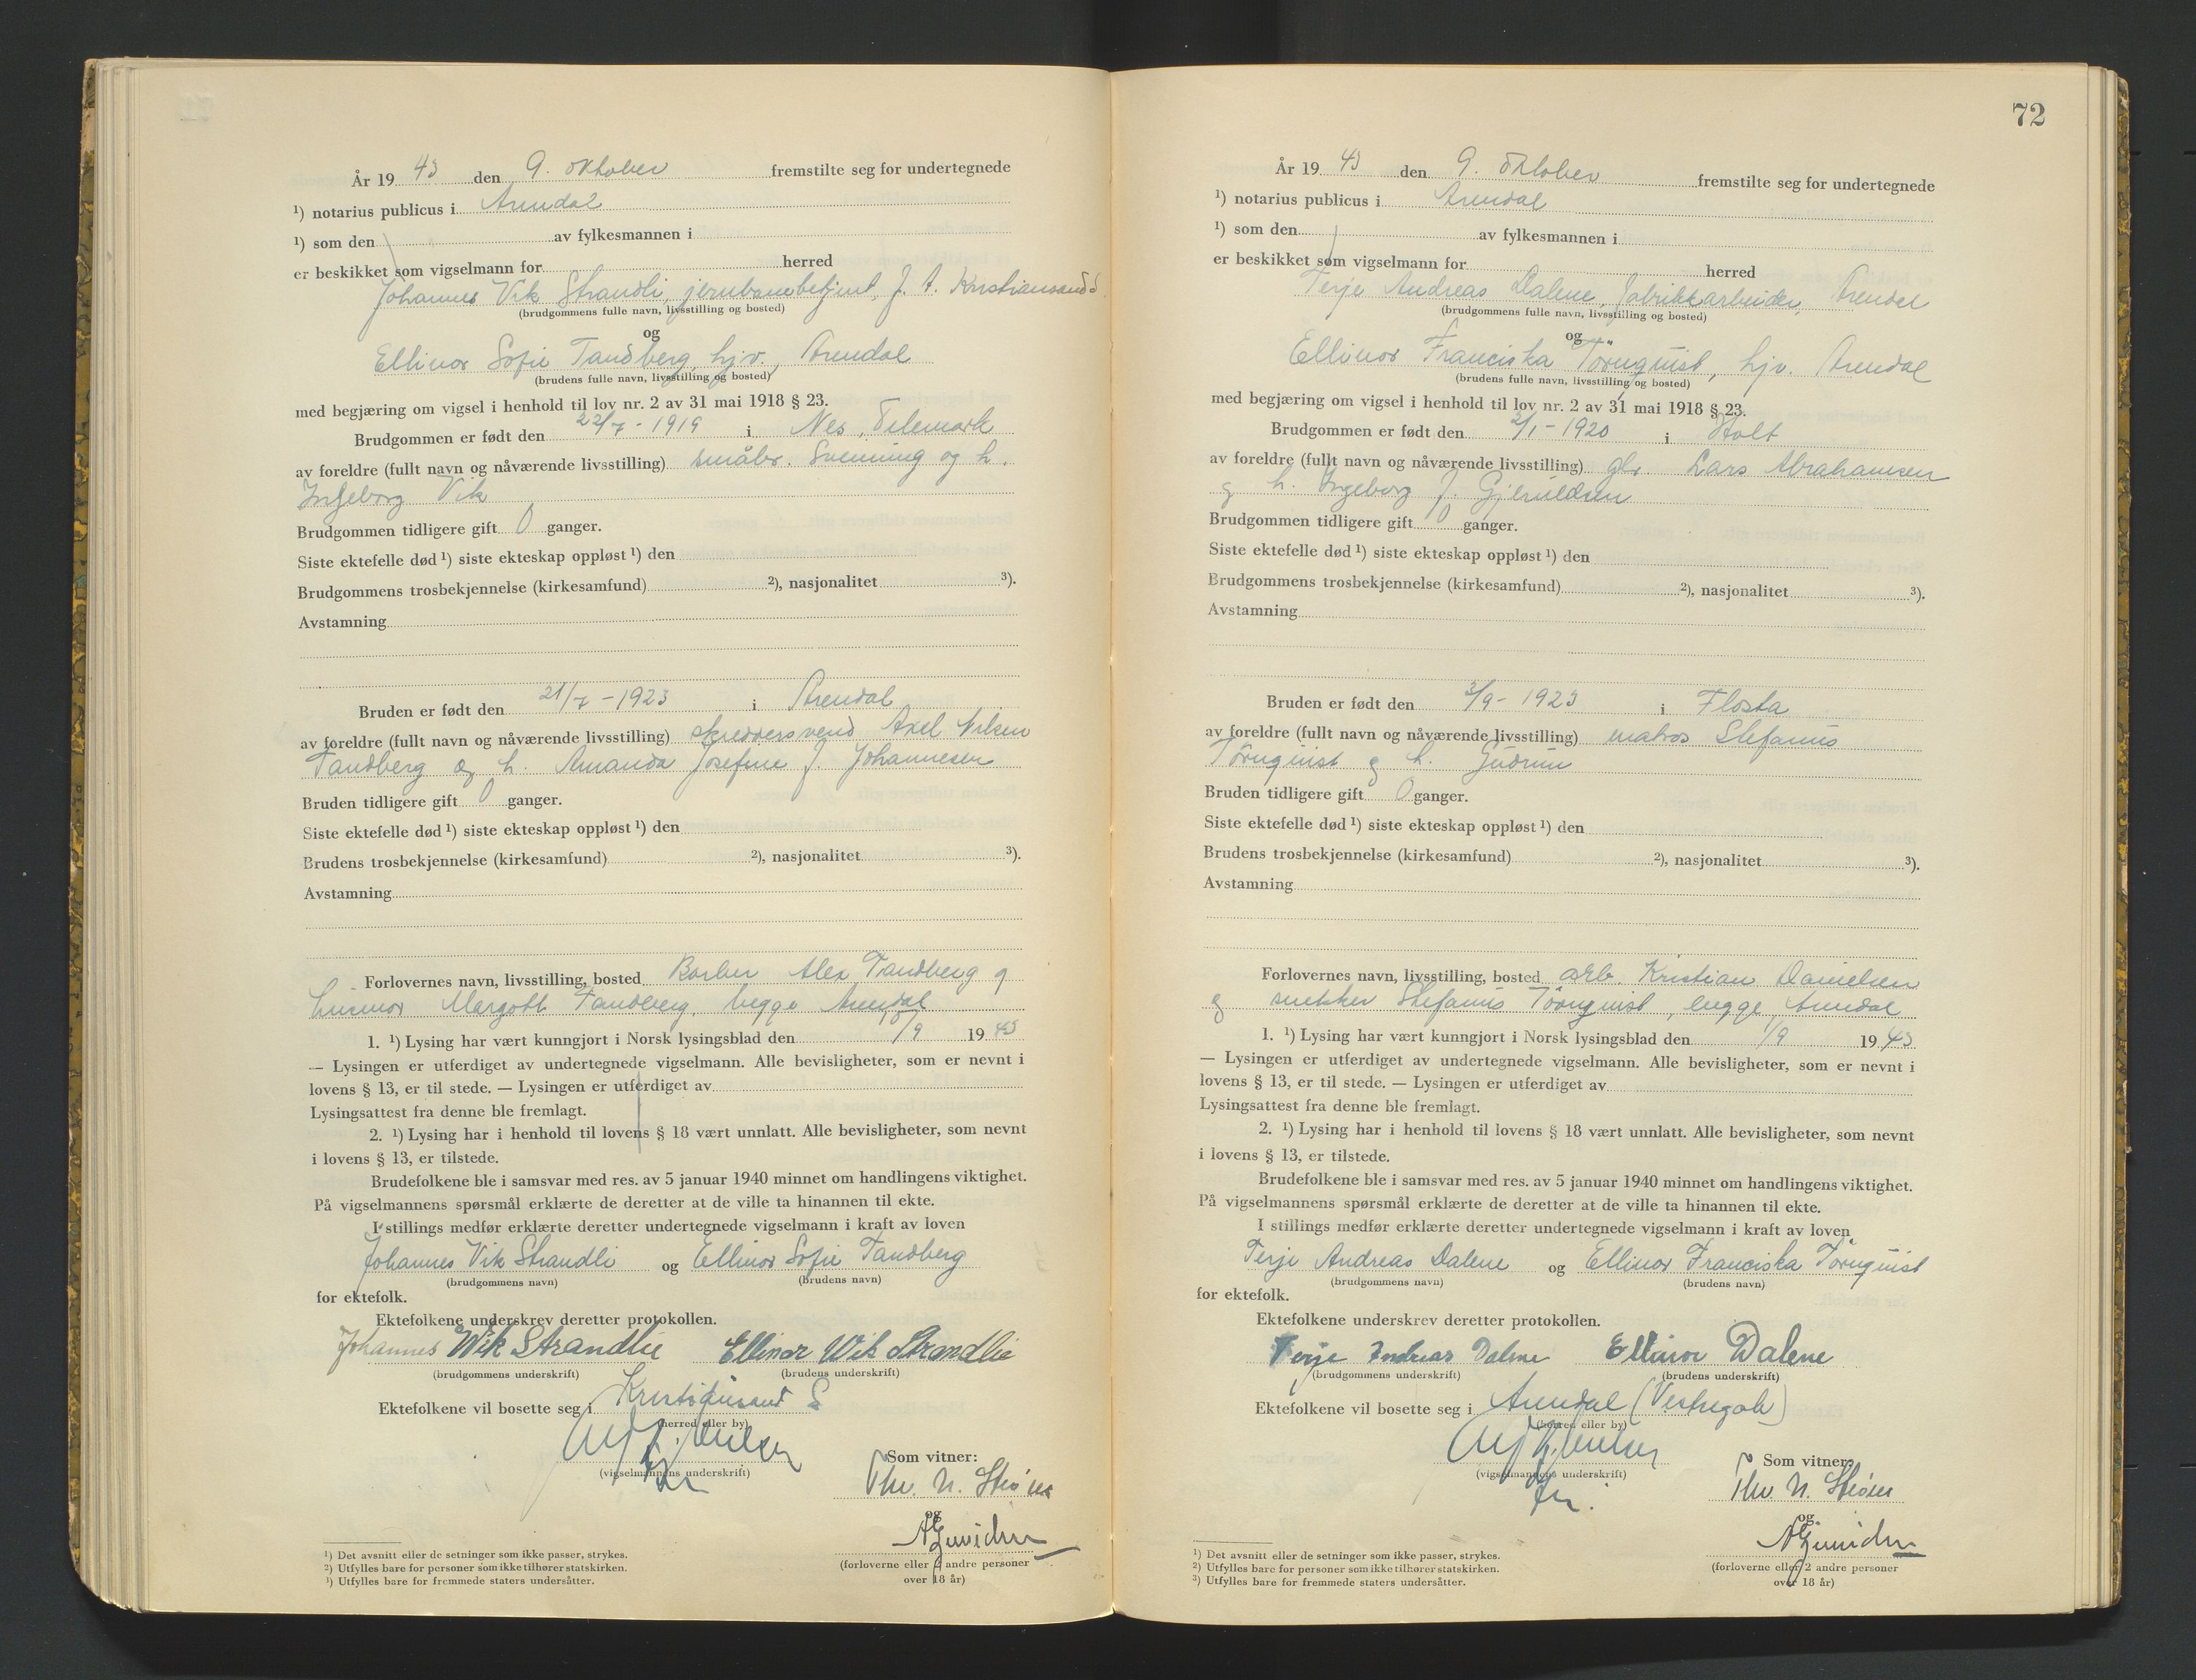 År 19 43 den 9. oktober fremstilte seg for undertegnede
¹) notarius publicus i Arendal
¹) som den av fylkesmannen i
er beskikket som vigselmann for herred
Johannes Vik Strandli, jernbanebetjent, Kristiansand S
(brudgommens fulle navn, livsstilling og bosted)
og
Ellinor Sofie Tandberg, hjv., Arendal
(brudens fulle navn, livsstilling og bosted)
med begjæring om vigsel i henhold til lov nr. 2 av 31 mai 1918 § 23.
Brudgommen er født den 22/7 - 1919 i Nes, Telemark
av foreldre (fullt navn og nåværende livsstilling) småbr. Svenning og h.
Ingeborg Vik
Brudgommen tidligere gift 0 ganger.
Siste ektefelle død ¹) siste ekteskap oppløst ¹) den
Brudgommens trosbekjennelse (kirkesamfund) ²), nasjonalitet ³).
Avstamning
Bruden er født den 21/7 - 1923 i Arendal
av foreldre (fullt navn og nåværende livsstilling) skreddersvend Axel Nilsen
Tandberg og h. Amanda Josefine f. Johannesen
Bruden tidligere gift 0 ganger.
Siste ektefelle død ¹) siste ekteskap oppløst ¹) den
Brudens trosbekjennelse (kirkesamfund) ²), nasjonalitet ³).
Avstamning
Forlovernes navn, livsstilling, bosted Barber Alex Tandberg og
Margoth Tandberg, begge Arendal
1. ¹) Lysing har vært kunngjort i Norsk lysingsblad den /9 19 43
— Lysingen er utferdiget av undertegnede vigselmann. Alle bevisligheter, som er nevnt i
lovens § 13, er til stede. — Lysingen er utferdiget av
Lysingsattest fra denne ble fremlagt.
2. ¹) Lysing har i henhold til lovens § 18 vært unnlatt. Alle bevisligheter, som nevnt
i lovens § 13, er tilstede.
Brudefolkene ble i samsvar med res. av 5 januar 1940 minnet om handlingens viktighet.
På vigselmannens spørsmål erklærte de deretter at de ville ta hinannen til ekte.
I stillings medfør erklærte deretter undertegnede vigselmann i kraft av loven
Johannes Vik Strandli og Ellinor Sofie Tandberg
(brudgommens navn) (brudens navn)
for ektefolk.
Ektefolkene underskrev deretter protokollen.
Johannes Wik Strandlie Ellinor Wik Strandlie
(brudgommens underskrift) (brudens underskrift)
Ektefolkene vil bosette seg i Kristiansand S
(herred eller by)
(vigselmannens underskrift)
Som vitner:
Thv. N.
og
(forloverne eller 2 andre personer
over 18 år)
¹) Det avsnitt eller de setninger som ikke passer, strykes.
²) Utfylles bare for personer som ikke tilhører statskirken.
³) Utfylles bare for fremmede staters undersåtter.
72
År 19 43 den 9. oktober fremstilte seg for undertegnede
¹) notarius publicus i Arendal
¹) som den av fylkesmannen i
er beskikket som vigselmann for herred
Terje Andreas Dalene, fabrikkarbeider, Arendal
(brudgommens fulle navn, livsstilling og bosted)
og
Ellinor Franciska Törnquist, hjv. Arendal
(brudens fulle navn, livsstilling og bosted)
med begjæring om vigsel i henhold til lov nr. 2 av 31 mai 1918 § 23.
Brudgommen er født den /1 - 1920 i Holt
av foreldre (fullt navn og nåværende livsstilling) Lars Abrahamsen
og h. Ingeborg f. Gjeruldsen
Brudgommen tidligere gift 0 ganger.
Siste ektefelle død ¹) siste ekteskap oppløst ¹) den
Brudgommens trosbekjennelse (kirkesamfund) ²), nasjonalitet ³).
Avstamning
Bruden er født den 3/9 - 1923 i Flosta
av foreldre (fullt navn og nåværende livsstilling) matros Stefanus
Törnquist og h. Gudrun
Bruden tidligere gift 0 ganger.
Siste ektefelle død ¹) siste ekteskap oppløst ¹) den
Brudens trosbekjennelse (kirkesamfund) ²), nasjonalitet ³).
Avstamning
Forlovernes navn, livsstilling, bosted arb. Kristian Danielsen
og snekker Stefanus Törnquist, begge Arendal
1. ¹) Lysing har vært kunngjort i Norsk lysingsblad den 1/9 19 43
— Lysingen er utferdiget av undertegnede vigselmann. Alle bevisligheter, som er nevnt i
lovens § 13, er til stede. — Lysingen er utferdiget av
Lysingsattest fra denne ble fremlagt.
2. ¹) Lysing har i henhold til lovens § 18 vært unnlatt. Alle bevisligheter, som nevnt
i lovens § 13, er tilstede.
Brudefolkene ble i samsvar med res. av 5 januar 1940 minnet om handlingens viktighet.
På vigselmannens spørsmål erklærte de deretter at de ville ta hinannen til ekte.
I stillings medfør erklærte deretter undertegnede vigselmann i kraft av loven
Terje Andreas Dalene og Ellinor Franciska Törnquist
(brudgommens navn) (brudens navn)
for ektefolk.
Ektefolkene underskrev deretter protokollen.
Terje Andreas Dalene Ellinor Dalene
(brudgommens underskrift) (brudens underskrift)
Ektefolkene vil bosette seg i Arendal (Vestregate)
(herred eller by)
(vigselmannens underskrift)
Som vitner:
Thv. N.
og
(forloverne eller 2 andre personer
over 18 år)
¹) Det avsnitt eller de setninger som ikke passer, strykes.
²) Utfylles bare for personer som ikke tilhører statskirken.
³) Utfylles bare for fremmede staters undersåtter.